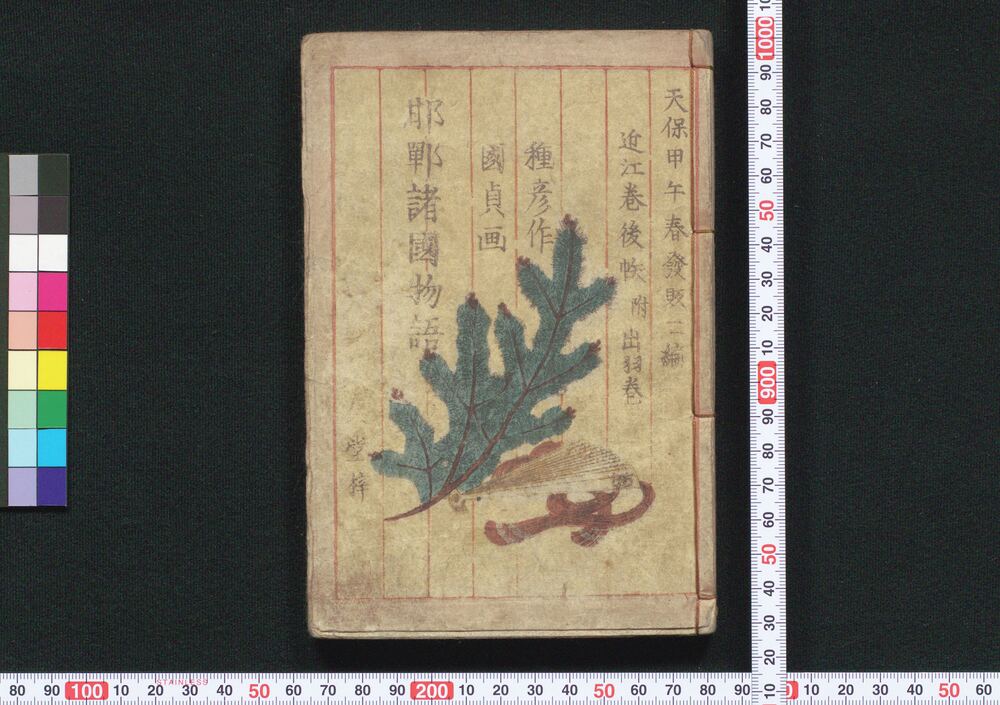 天保甲午春發販二編
近江巻後帙 附 出羽巻
種彦作
國貞画
邯鄲諸國物語
堂梓
80 90 100 10 20 30 40 50 60 70 80 90 200 10 20 30 40 50 60 70 80 90 0 10 20 30 40 50 60
STAINLESS
1000 90 80 70 60 50 40 30 20 10 900 90 80 70 60 50 40 30 20 10